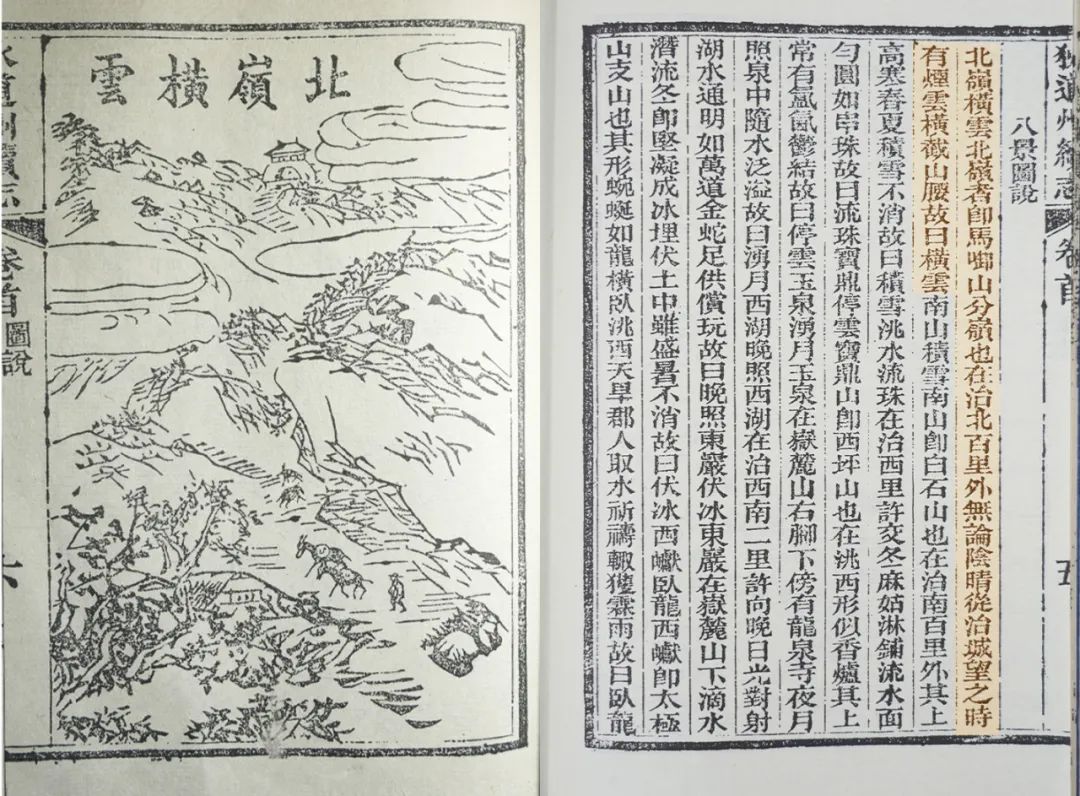 狄道州續志 卷首 五
八景圖說
北嶺橫雲北嶺者卽馬啣山分嶺也在治北百里外無論陰晴從治城望之時
有煙雲橫截山腰故曰橫雲南山積雪南山卽白石山也在治南百里外其上
高寒春夏積雪不消故曰積雪洮水流珠在治西里許交冬麻姑淋鋪流水面
勻圓如串珠故曰流珠寶鼎停雲寶鼎山卽西坪山也在洮西形似香爐其上
常有氳氤鬱結故曰停雲玉泉湧月玉泉在嶽麓山右腳下傍有龍泉寺夜月
照泉中隨水泛溢故曰湧月西湖晚照西湖在治西南二里許向晚日光對射
湖水通明如萬道金蛇足供償玩故曰晚照東巖伏冰東巖在嶽麓山下滴水
潛流冬卽堅凝成冰埋伏土中雖盛暑不消故曰伏冰西巘臥龍西巘卽太極
山支山也其形蜿蜒如龍橫臥洮西天旱郡人取水祈禱輙獲霖雨故曰臥龍
北嶺橫雲
狄道州續志 卷首 圖說 六